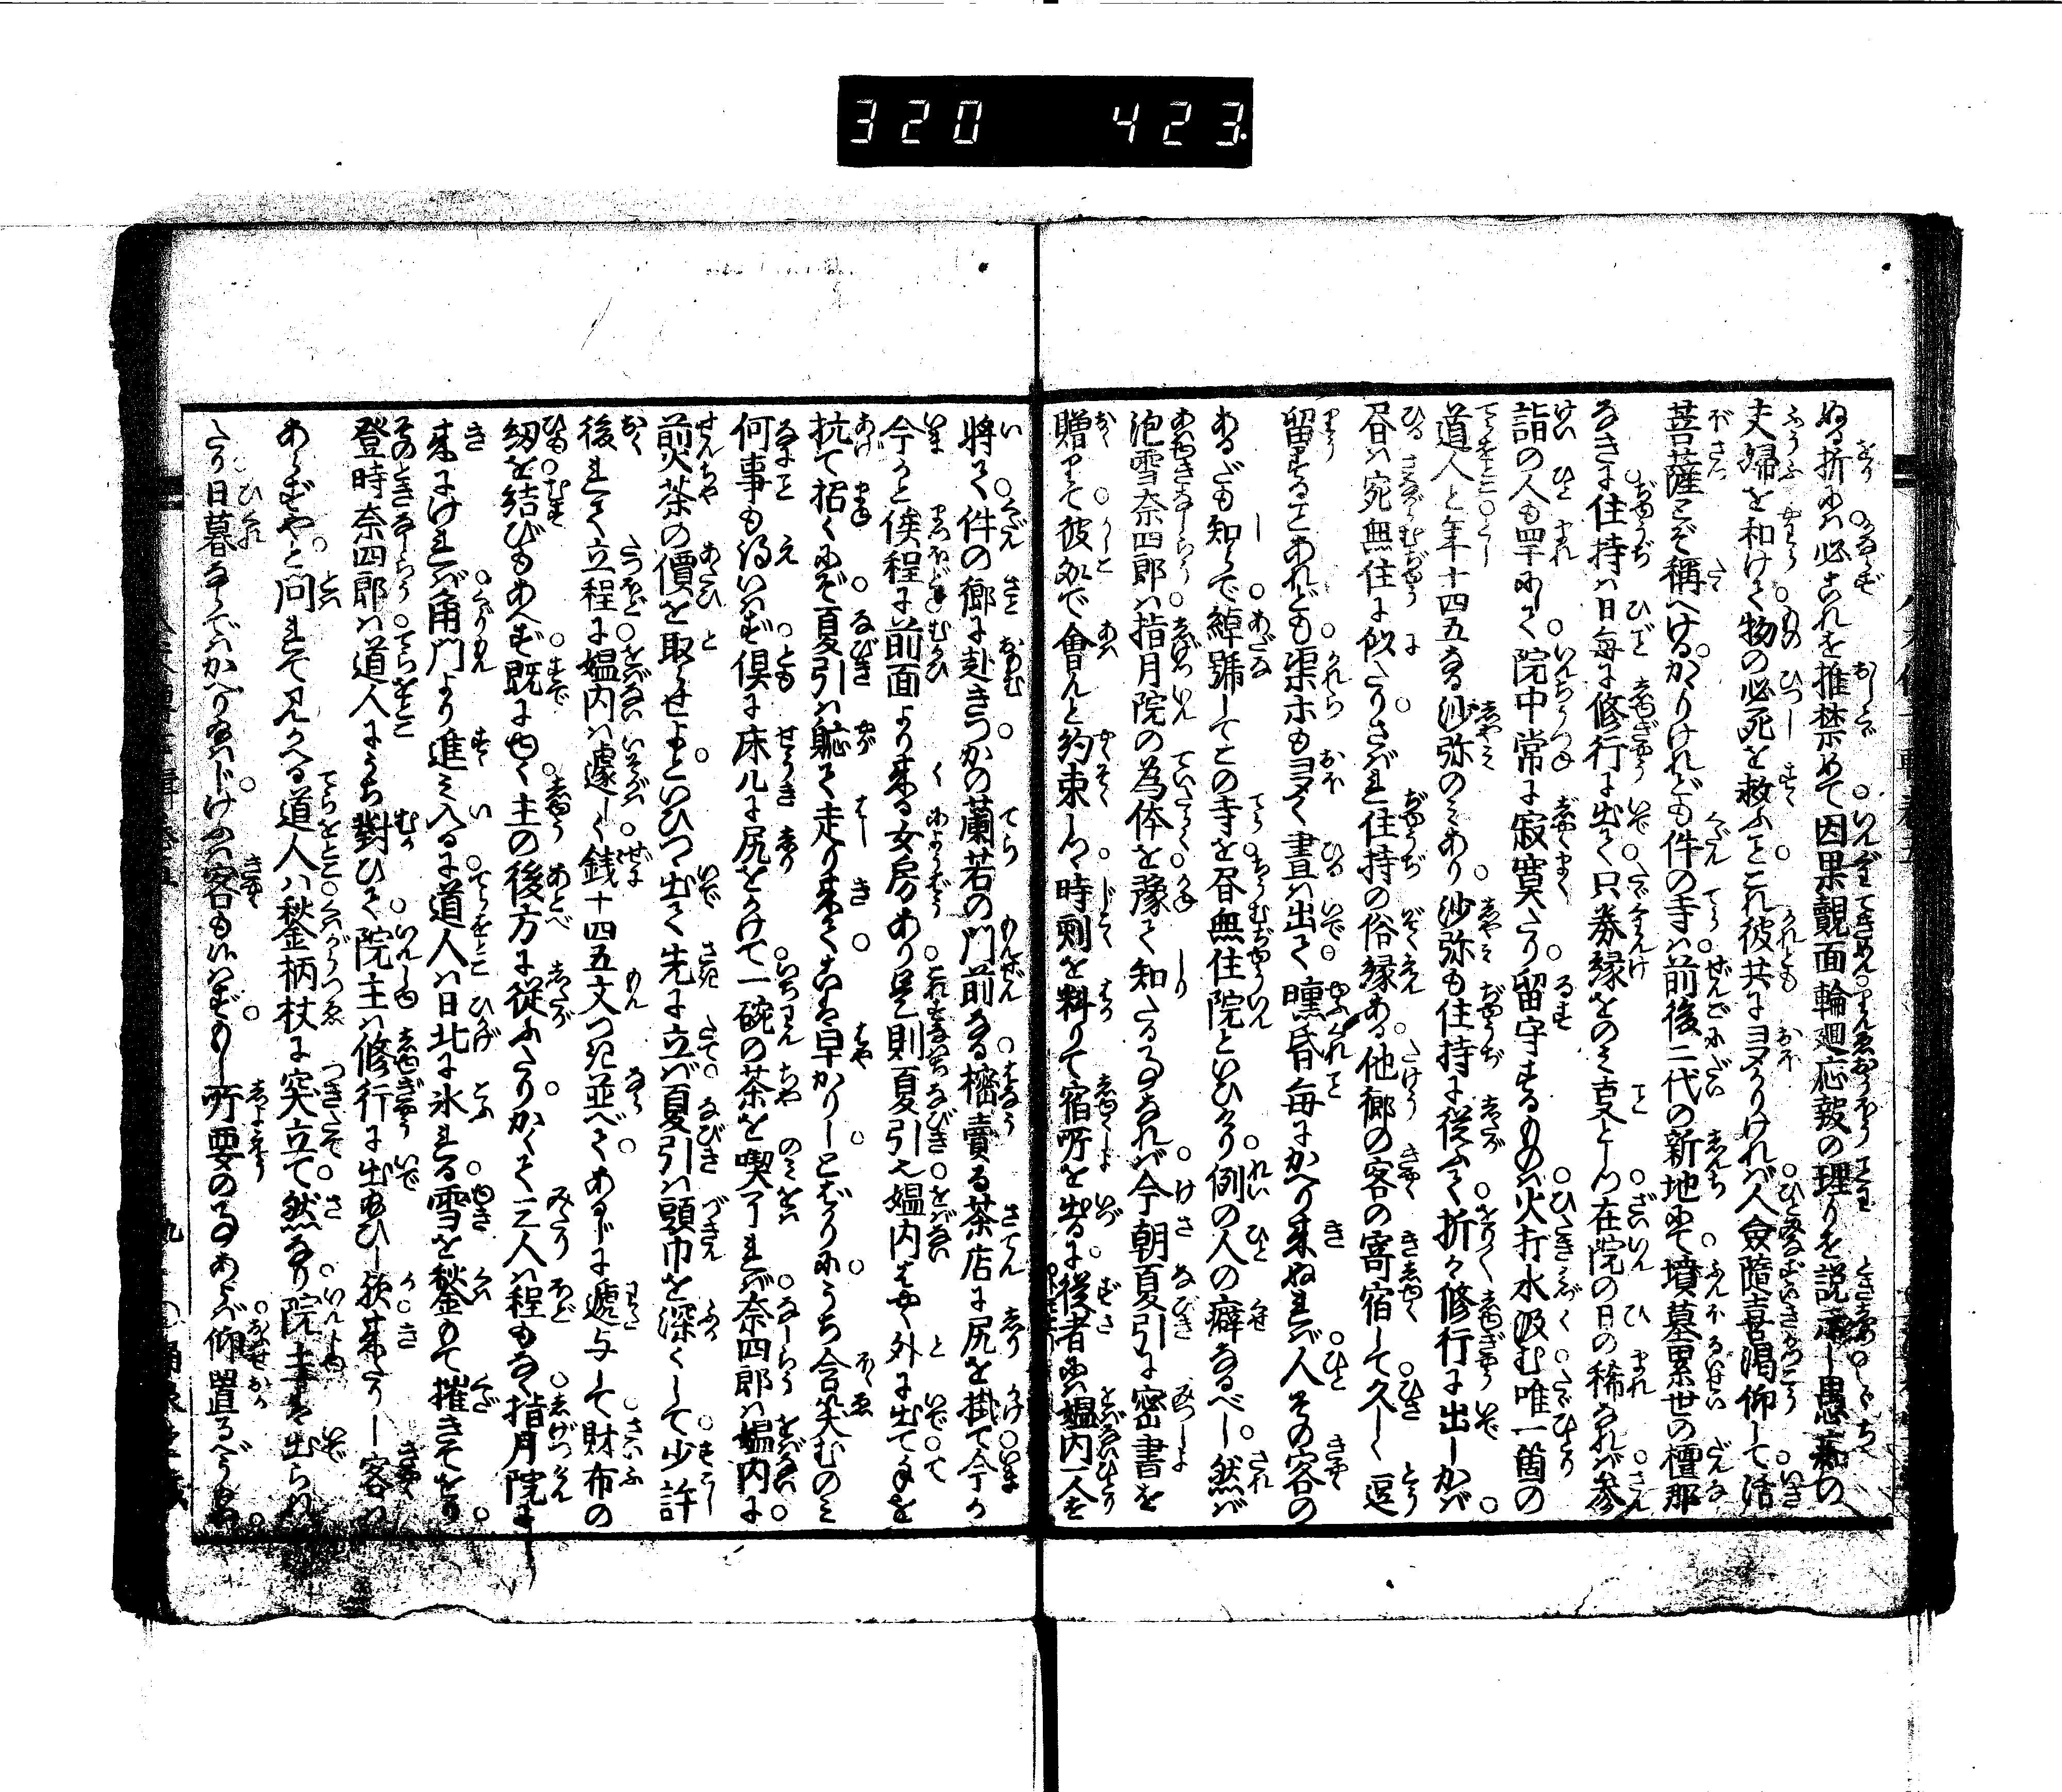 320 423
ぬる折には必これを推禁めて因果覿面輪廻応報の理りを説示し愚痴の
夫婦を和けて物の必死を救ふこと彼此共に多かりければ人僉随喜渇仰して活
菩薩とぞ稱へけるかゝりけれども件の寺は前後二代の新地にて墳墓累世の檀那
なきに住持は日毎に修行に出て只券縁をのみ事とし在院の日の稀なれば参
詣の人も罕にて院中常に寂寞たり留守するものは火打水汲む唯一箇の
道人と年十四五なる沙弥のみあり沙弥も住持に従ふて折々修行に出しかば
昼は宛無住に似たりされば住持の俗縁ある他郷の客の寄宿して久しく逗
留することあれども渠等も多く昼は出て曛昏毎にかへり来ぬれば人その客の
あるだも知らで綽號してこの寺を昼無住院といひけり例の人の癖なるべし然ば
泡雪奈四郎は指月院の為体を豫て知たる事なれば今朝夏引に密書を
贈りて彼処で會んと約束しつ時刻を料りて宿所を出るに従者は媼内一人を
将て件の郷に赴きつかの蘭若の門前なる樒賣る茶店に尻を掛て今か
今かと俟程に前面より来る女房あり是則夏引也媼内はやく外に出て手を
抗て招くにぞ夏引は軈て走り来てこは早かりしとばかりにうち含笑むのみ
何事も得いはず倶に床几に尻をかけて一碗の茶を喫了れば奈四郎は媼内に
煎茶の價を取らせよといひつゝ出て先に立ば夏引は頭巾を深くして少許
後れて立程に媼内は遽しく銭十四五文つき並べてあるじに逓与して財布の
紐を結びもあへず既にゆく主の後方に従ふたりかくて三人は程もなく指月院に
来にければ角門より進み入るに道人は日北に氷れる雪を鍬もて摧きてをり
登時奈四郎は道人にうち對ひて院主は修行に出給ひし歟来たりし客は
あらずやと問れて見かへる道人は鍬柄杖に突立て然なり院主は出られ
たり日暮ならではかへり給はじけふは客もいはずもし所要の事あらば仰置るべうもや